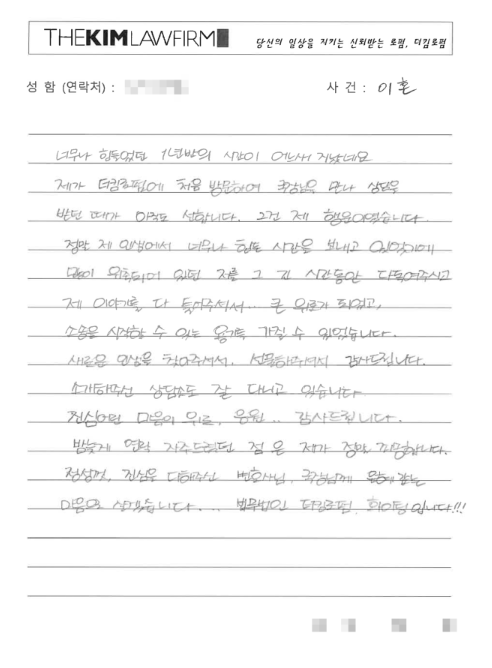 THEKIMLAWFIRM
당신의 일상을 지키는 신뢰받는 로펌, 더킴로펌
성 함 (연락처) :
사 건 : 이혼
너무나 힘들었던 1년반의 시간이 어느새 지났네요
제가 더킴로펌에 처음 방문하여 국장님을 만나 상담을
받던 때가 아직도 선합니다. 그건 제 행운이었습니다.
정말 제 인생에서 너무나 힘든 시간을 보내고 있었기에
많이 위축되어 있던 저를 그 긴 시간동안 다독여주시고
제 이야기를 다 들어주셔서.. 큰 위로가 되었고,
소송을 시작할 수 있는 용기를 가질 수 있었습니다.
새로운 일상을 찾아주셔서, 선물해주셔서 감사드립니다.
소개해주신 상담소도 잘 다니고 있습니다
진심어린 마음의 위로, 응원.. 감사드립니다.
밤늦게 연락 자주드렸던 점은 제가 정말 죄송합니다.
정성껏, 진심을 다해주신 변호사님, 국장님께 감사
마음으로 살겠습니다... 법무법인 더킴로펌, 화이팅입니다!!!